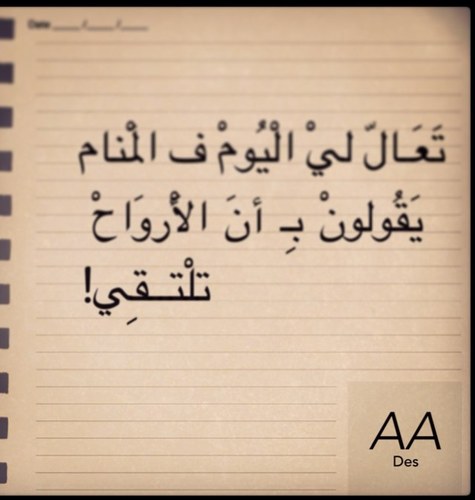 Date ___/___/___
تَعَـالّ ليْ الْيُومْ ف الْمنام
يَقُولونْ بِـ أنَ الأروَاحْ
تلْتــقِي!
AA
Des